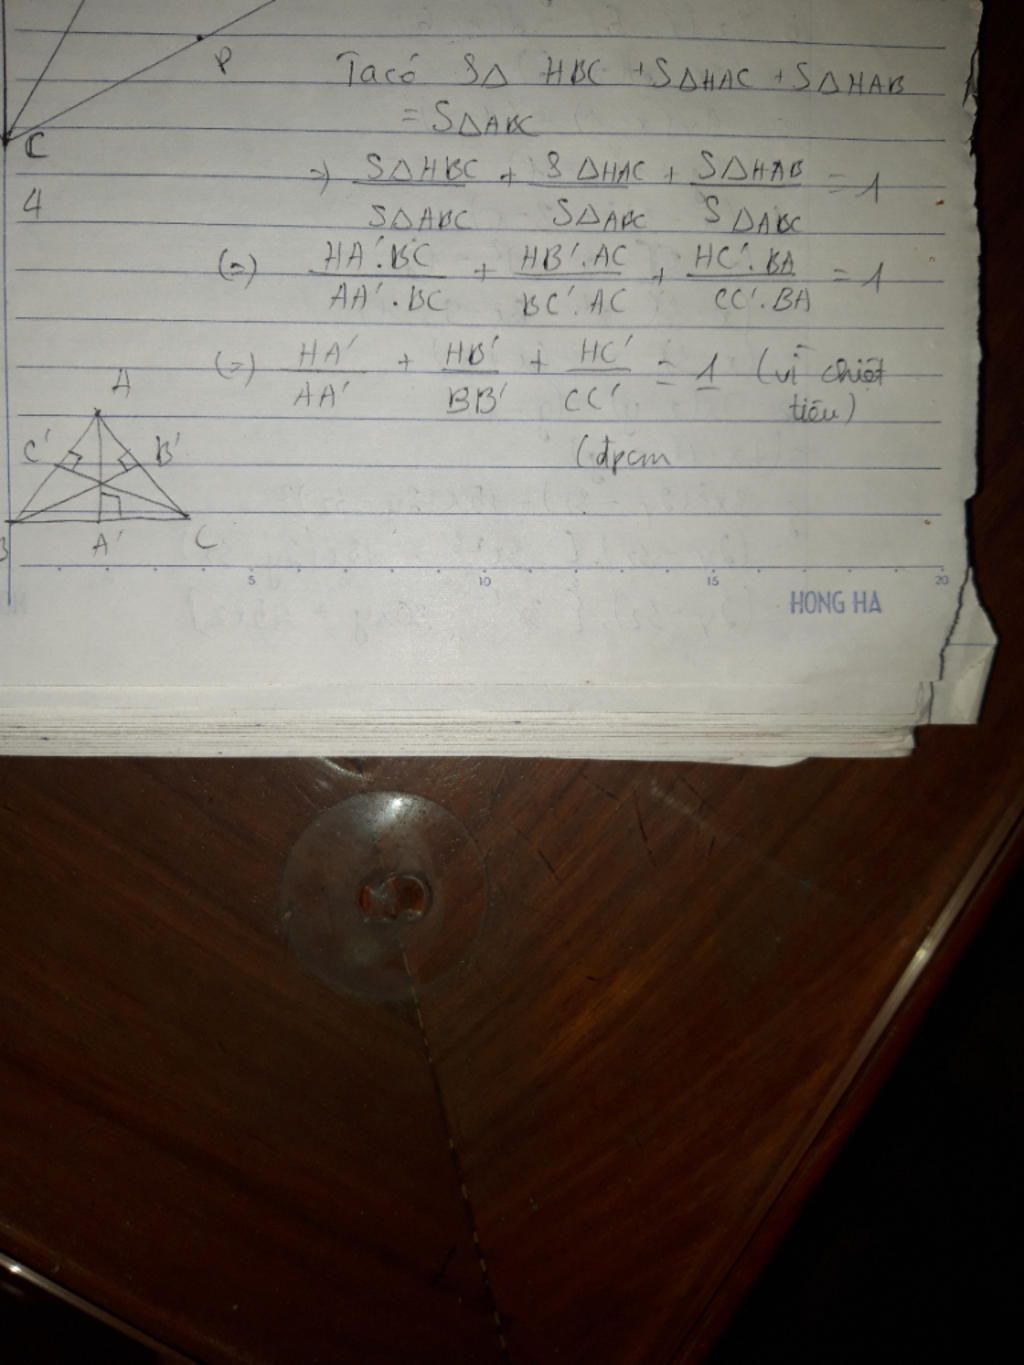 P
Ta có S∆ HBC + S∆HAC + S∆HAB
= S∆ABC
C
=> S∆HBC/S∆ABC + S∆HAC/S∆ABC + S∆HAB/S∆ABC = 1
4
(=) HA'.BC/AA'.BC + HB'.AC/BC'.AC + HC'.BA/CC'.BA = 1
(=) HA'/AA' + HB'/BB' + HC'/CC' = 1 (vì chiệt
tiêu)
A
C' B'
(đpcm
B A' C
5 10 15 20
HONG HA